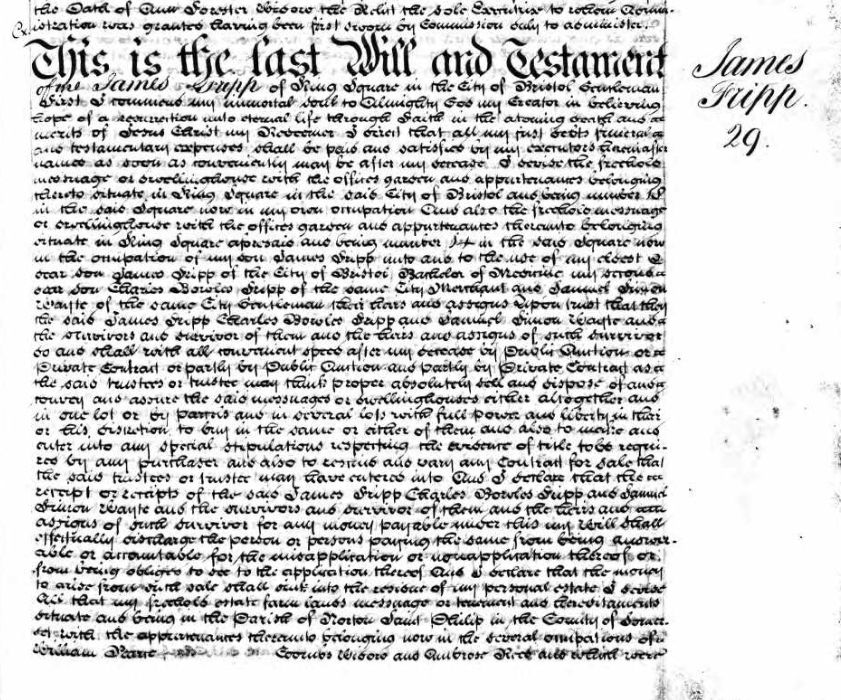 the Oath of Ann Forester Widow the Relict the sole Executrix to whom Admin-
istration was granted having been first sworn by Commission duly to administer.
This is the last Will and Testament
of me James Fripp of King Square in the City of Bristol Gentleman
First I commend my immortal soul to Almighty God my Creator in believing
hope of a resurrection unto eternal life through Faith in the atoning death and
merits of Jesus Christ my Redeemer I direct that all my just debts funeral
and testamentary expenses shall be paid and satisfied by my executors hereinafter
named as soon as conveniently may be after my decease I devise the freehold
messuage or dwellinghouse with the offices garden and appurtenances belonging
thereto situate in King Square in the said City of Bristol and being number
in the said Square now in my own occupation And also the freehold messuage
or dwellinghouse with the offices garden and appurtenances thereunto belonging
situate in King Square aforesaid and being number in the said Square now
in the occupation of my son James Fripp unto and to the use of my eldest
dear son James Fripp of the City of Bristol Bachelor of Medicine my second
dear son Charles Bowles Fripp of the same City Merchant and Samuel Simon
Wayte of the same City Gentleman their heirs and assigns Upon trust that they
the said James Fripp Charles Bowles Fripp and Samuel Simon Wayte and
the survivors and survivor of them and the heirs and assigns of such survivor
do and shall with all convenient speed after my decease by Public Auction or
Private Contract or partly by Public Auction and partly by Private Contract as
the said trustees or trustee may think proper absolutely sell and dispose of and
convey and assure the said messuages or dwellinghouses either altogether and
in one lot or by parcels and in several lots with full power and liberty in their
or his discretion to buy in the same or either of them and also to make and
enter into any special stipulations respecting the evidence of title to be requi-
red by any purchaser and also to rescind and vary any Contract for sale that
the said trustees or trustee may have entered into And I declare that the
receipt or receipts of the said James Fripp Charles Bowles Fripp and Samuel
Simon Wayte and the survivors and survivor of them and the heirs and
assigns of such survivor for any money payable under this my Will shall
effectually discharge the person or persons paying the same from being answer-
able or accountable for the misapplication or nonapplication thereof or
from being obliged to see to the application thereof And I declare that the money
to arise from such sale shall sink into the residue of my personal estate I devise
All that my freehold estate farm lands messuage or tenement and hereditaments
situate and being in the Parish of Norton Saint Philip in the County of Somer-
set with the appurtenances thereunto belonging now in the several occupations of
William Widow and Ambrose and which were
James
Fripp.
29.